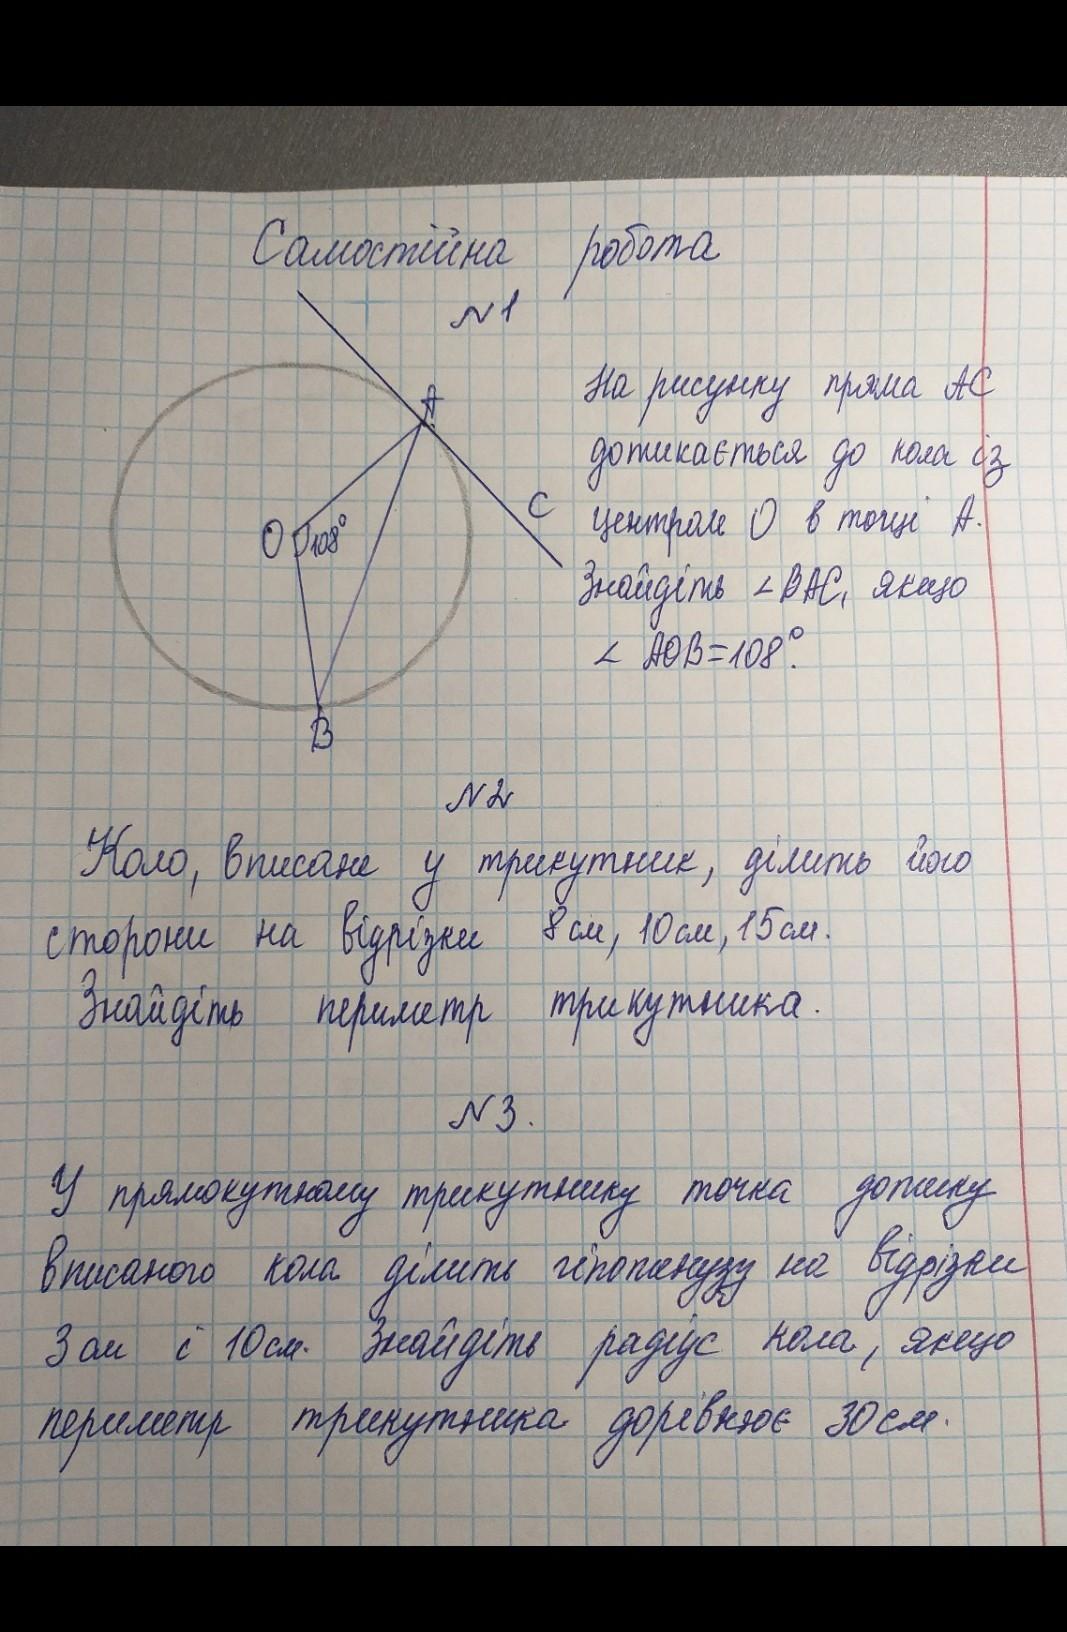 Самостійна робота
N1
A
O 108°
C
B
На рисунку пряма AC
дотикається до кола із
центром O в точці A.
Знайдіть ∠BAC, якщо
∠ AOB=108°.
N2
Коло, вписане у трикутник, ділить його
сторони на відрізки 8см, 10см, 15см.
Знайдіть периметр трикутника.
N3.
У прямокутному трикутнику точка дотику
вписаного кола ділить гіпотенузу на відрізки
3 см і 10см. Знайдіть радіус кола, якщо
периметр трикутника дорівнює 30см.